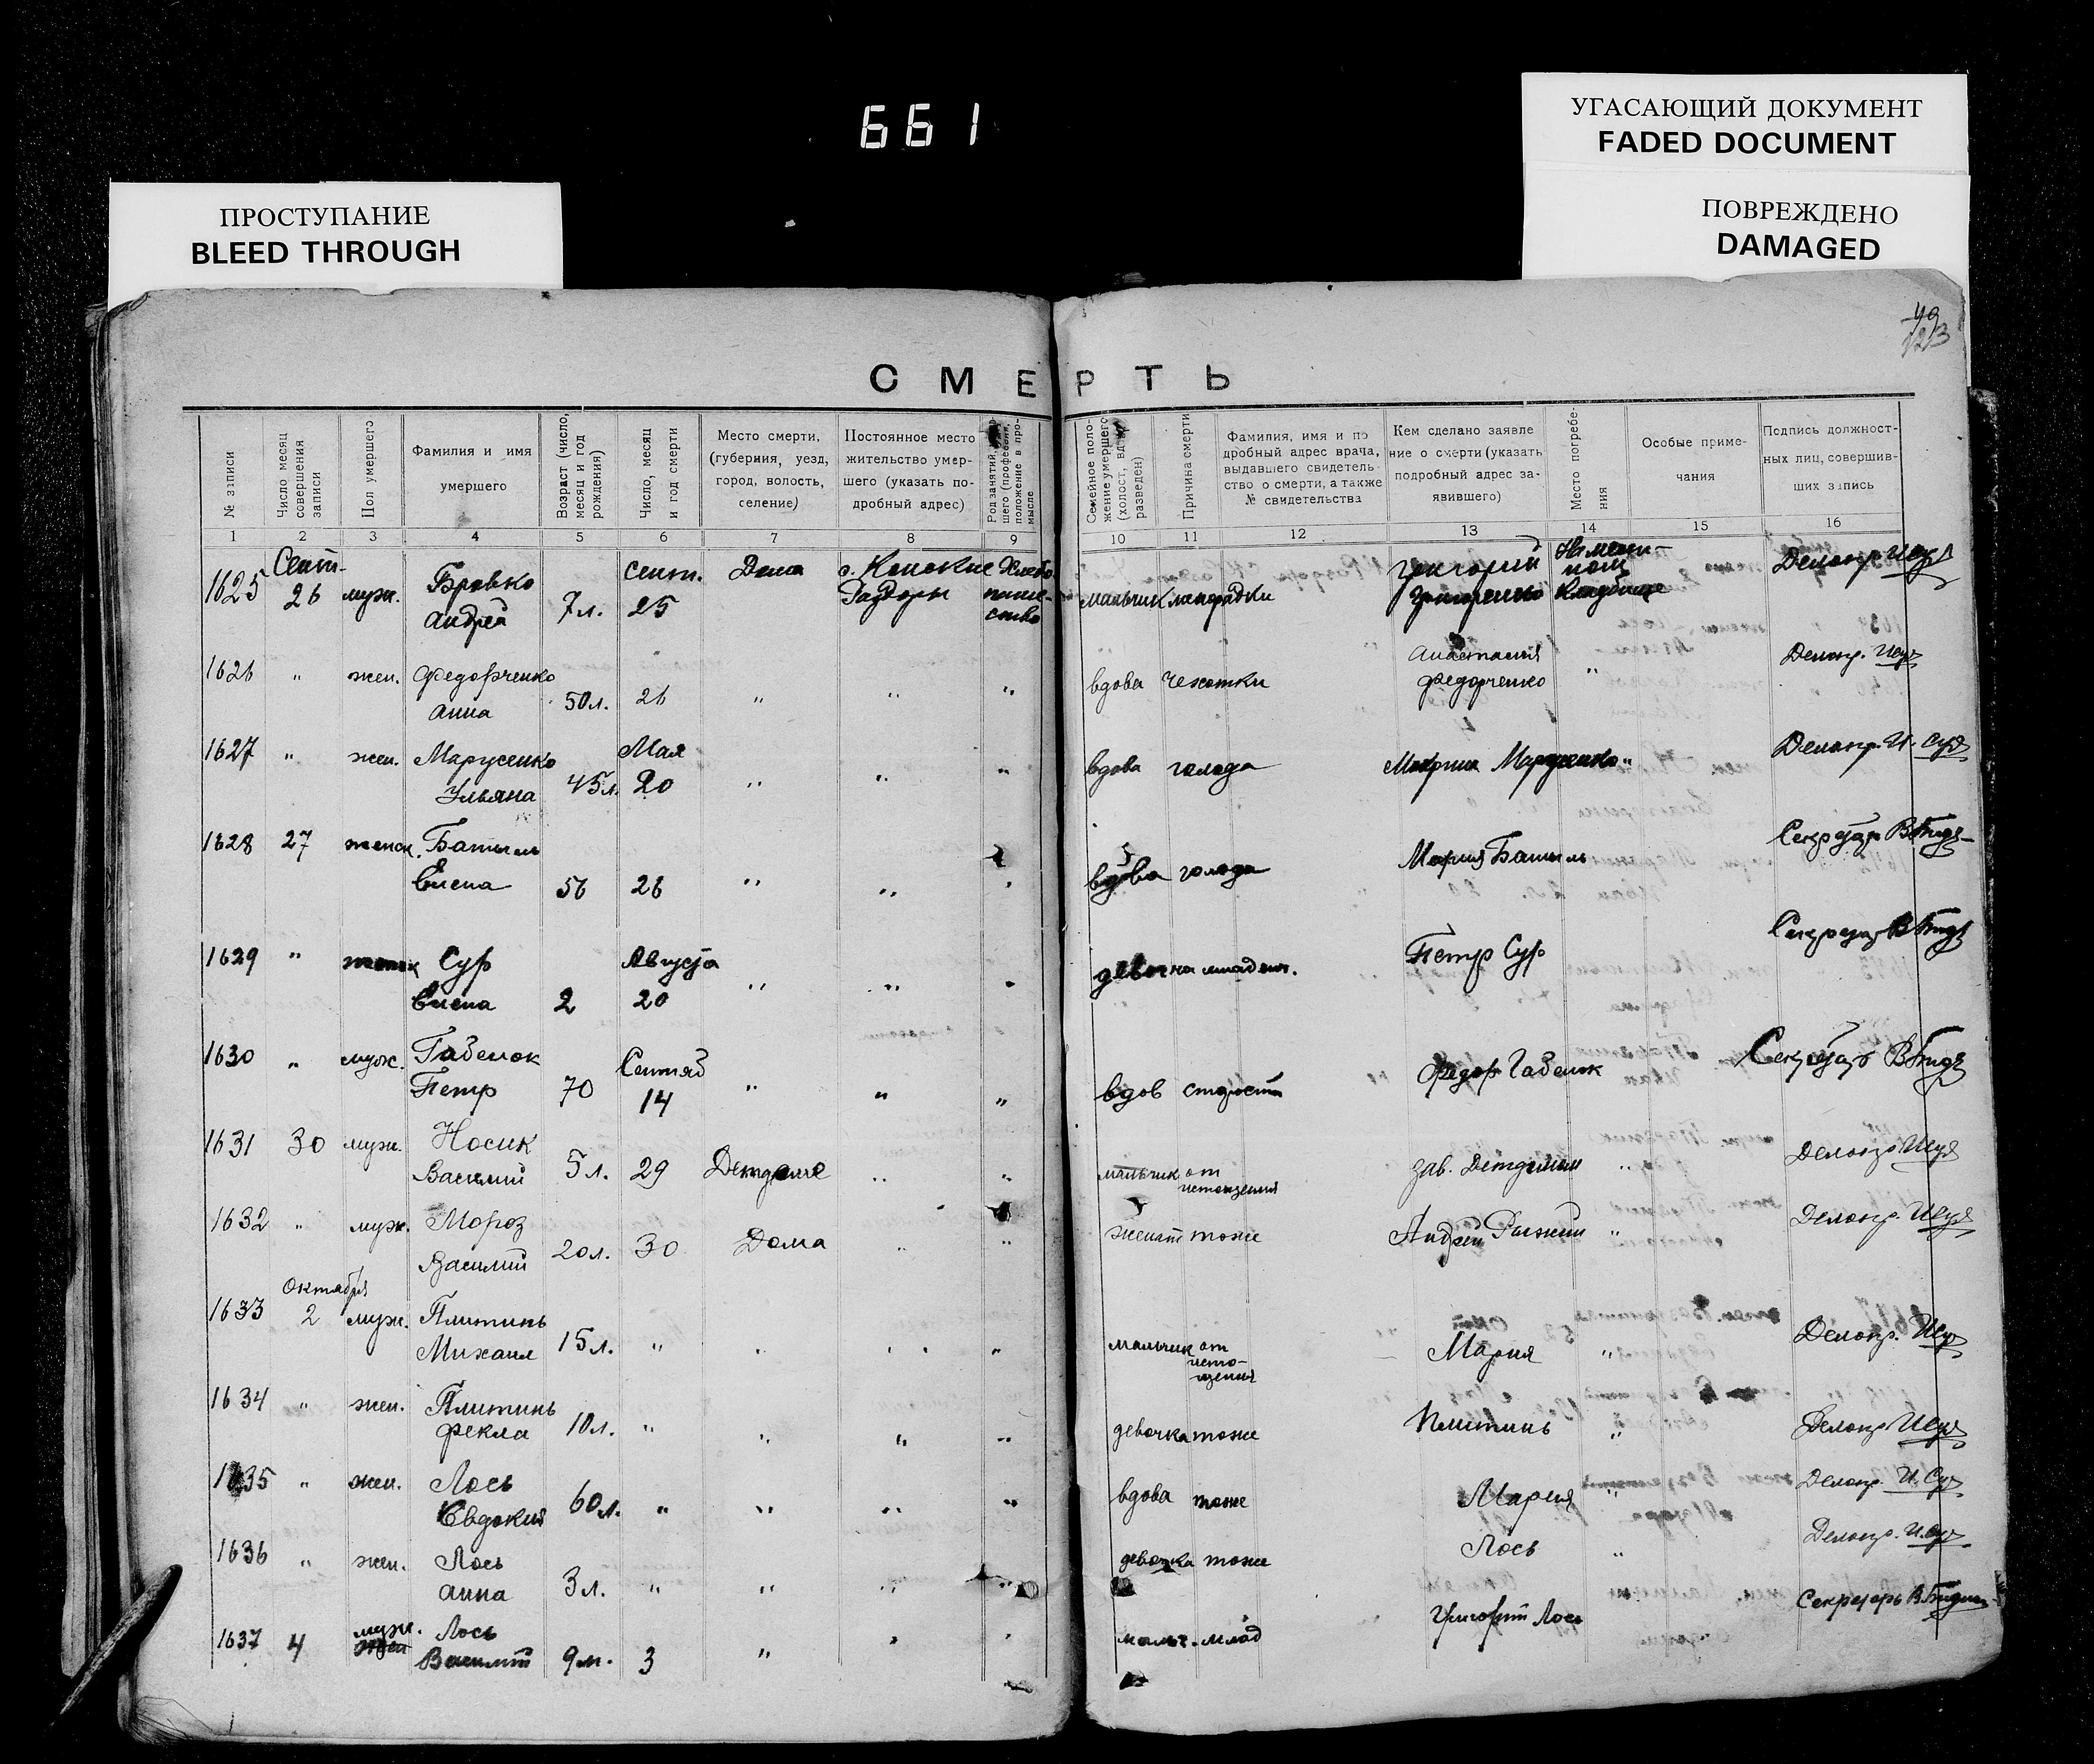 661
УГАСАЮЩИЙ ДОКУМЕНТ
FADED DOCUMENT
ПОВРЕЖДЕНО
DAMAGED
ПРОСТУПАНИЕ
BLEED THROUGH
49
СМЕРТЬ
№ записи
Число месяц совершения записи
Пол умершего
Фамилия и имя умершего
Возраст (число, месяц и год рождения)
Число, месяц и год смерти
Место смерти, (губерния, уезд, город, волость, селение)
Постоянное место жительство умершего (указать подробный адрес)
Род занятий,
положение в промысле
Семейное положение умершего (холост, вдов, разведен)
Причина смерти
Фамилия, имя и подробный адрес врача, выдавшего свидетельство о смерти, а также № свидетельства
Кем сделано заявление о смерти (указать подробный адрес заявившего)
Место погребения
Особые примечания
Подпись должностных лиц, совершивших запись
1 2 3 4 5 6 7 8 9 10 11 12 13 14 15 16
1625 Сент. 26 муж. Бровко Андрей 7л. сент. 25 Дома с. Конские Раздоры Хлебопашество мальчик лихорадки Григорий кладбище Делопр.
1626 " жен. Федорченко Анна 50л. 26 " " " вдова чехотки Анастасия Федорченко " Делопр.
1627 " жен. Марусенко Ульяна 45л. Мая 20 " " " вдова голода Марусенко " Делопр.
1628 27 женск. Батыль Елена 56 26 " " " вдова голода Мария Батыль Секретарь
1629 " женск Сур Елена 2 Августа 20 " " " девочка младен. Петр Сур Секретарь
1630 " муж. Габелок Петр 70 Сентяб 14 " " " вдов старости Федор Габелок Секретарь
1631 30 муж. Носик Василий 5л. 29 Детдоме " " мальчик от истощения зав. Детдомом " Делопр
1632 " муж. Мороз Василий 20л. 30 Дома " " женат тоже Андрей " Делопр.
1633 Октября 2 муж. Плитинь Михаил 15л. " " " " мальчик от истощения Мария " Делопр.
1634 " жен. Плитинь Фекла 10л. " " " " девочка тоже Плитинь " Делопр
1635 " жен. Лось Евдокия 60л. " " " " вдова тоже Мария " Делопр.
1636 " жен. Лось Анна 3л. " " " " девочка тоже Лось " Делопр.
1637 4 муж. Лось Василий 9м. 3 " " " мальч. млад Григорий Лось Секретарь